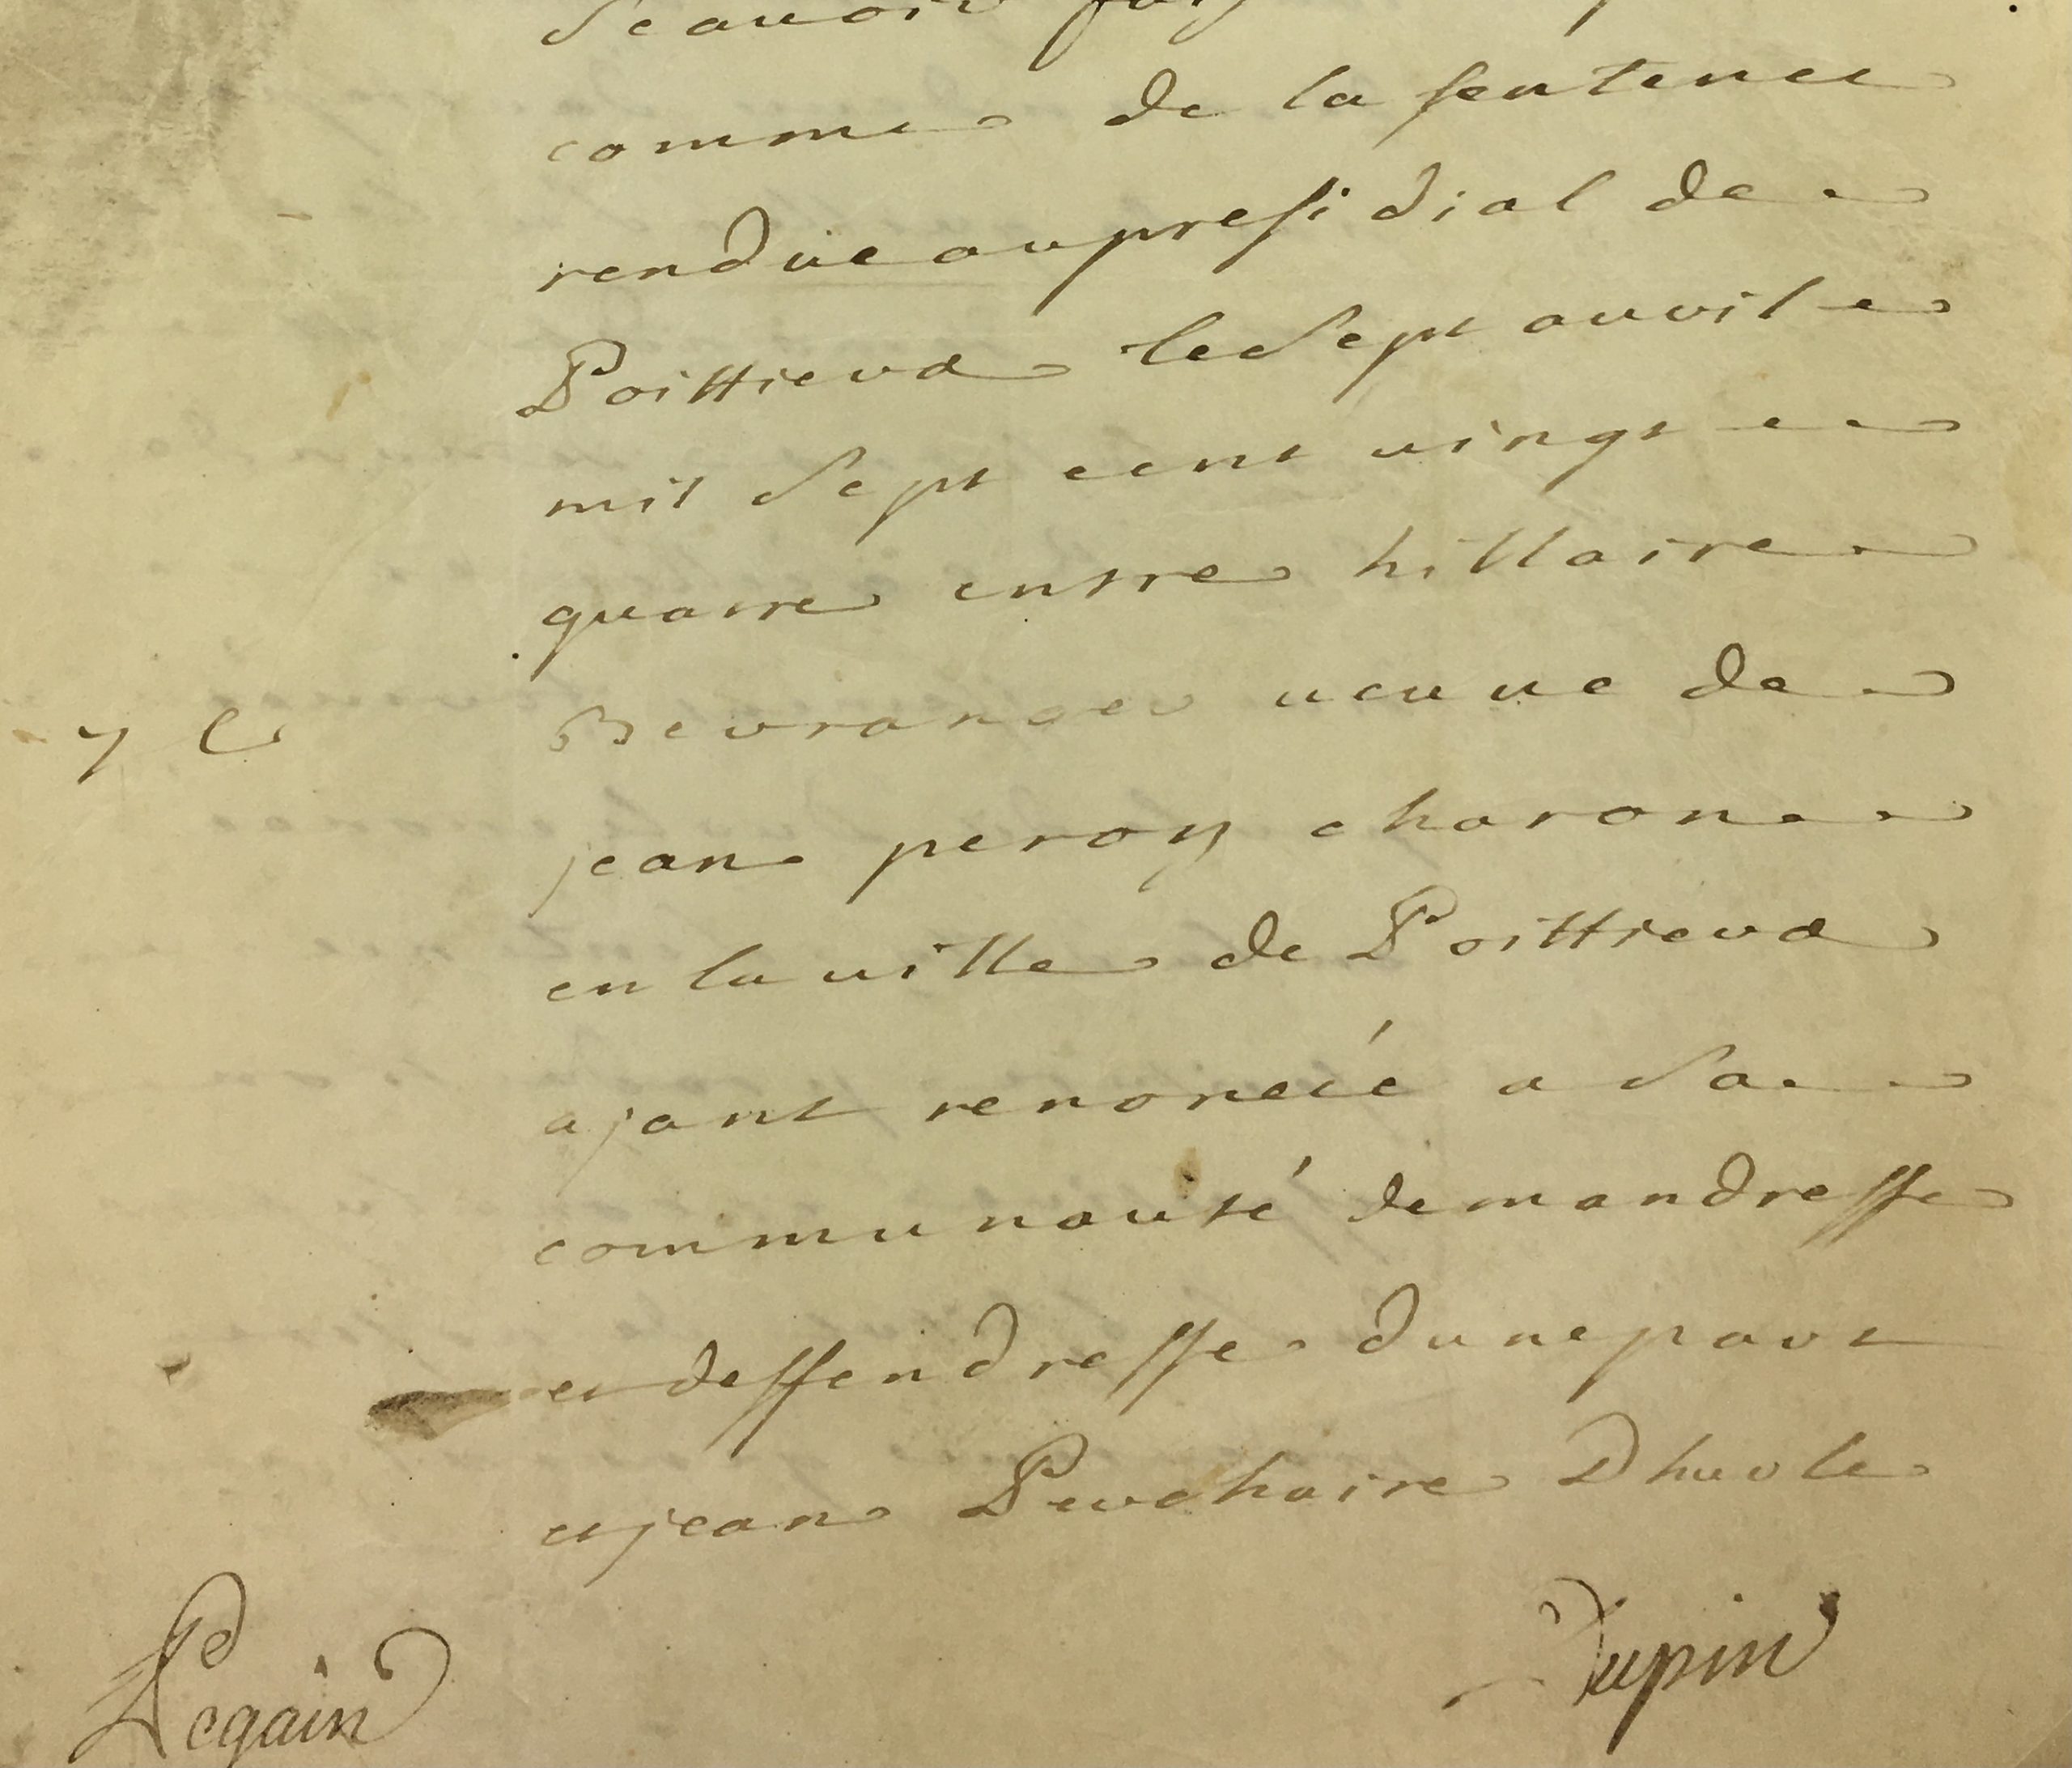 Scavoir fai
comme de la sentence
rendue au presidial de
Poittiers le Sept avril
mil Sept cent vingt
quatre entre hillaire
Beuranger veuve de
jean peroy charon
en la ville de Poittiers
ajant renoncé a Sa
communauté demandresse
et deffendresse dune part
et jean Perchaire Dhuole
Legain
Dupin